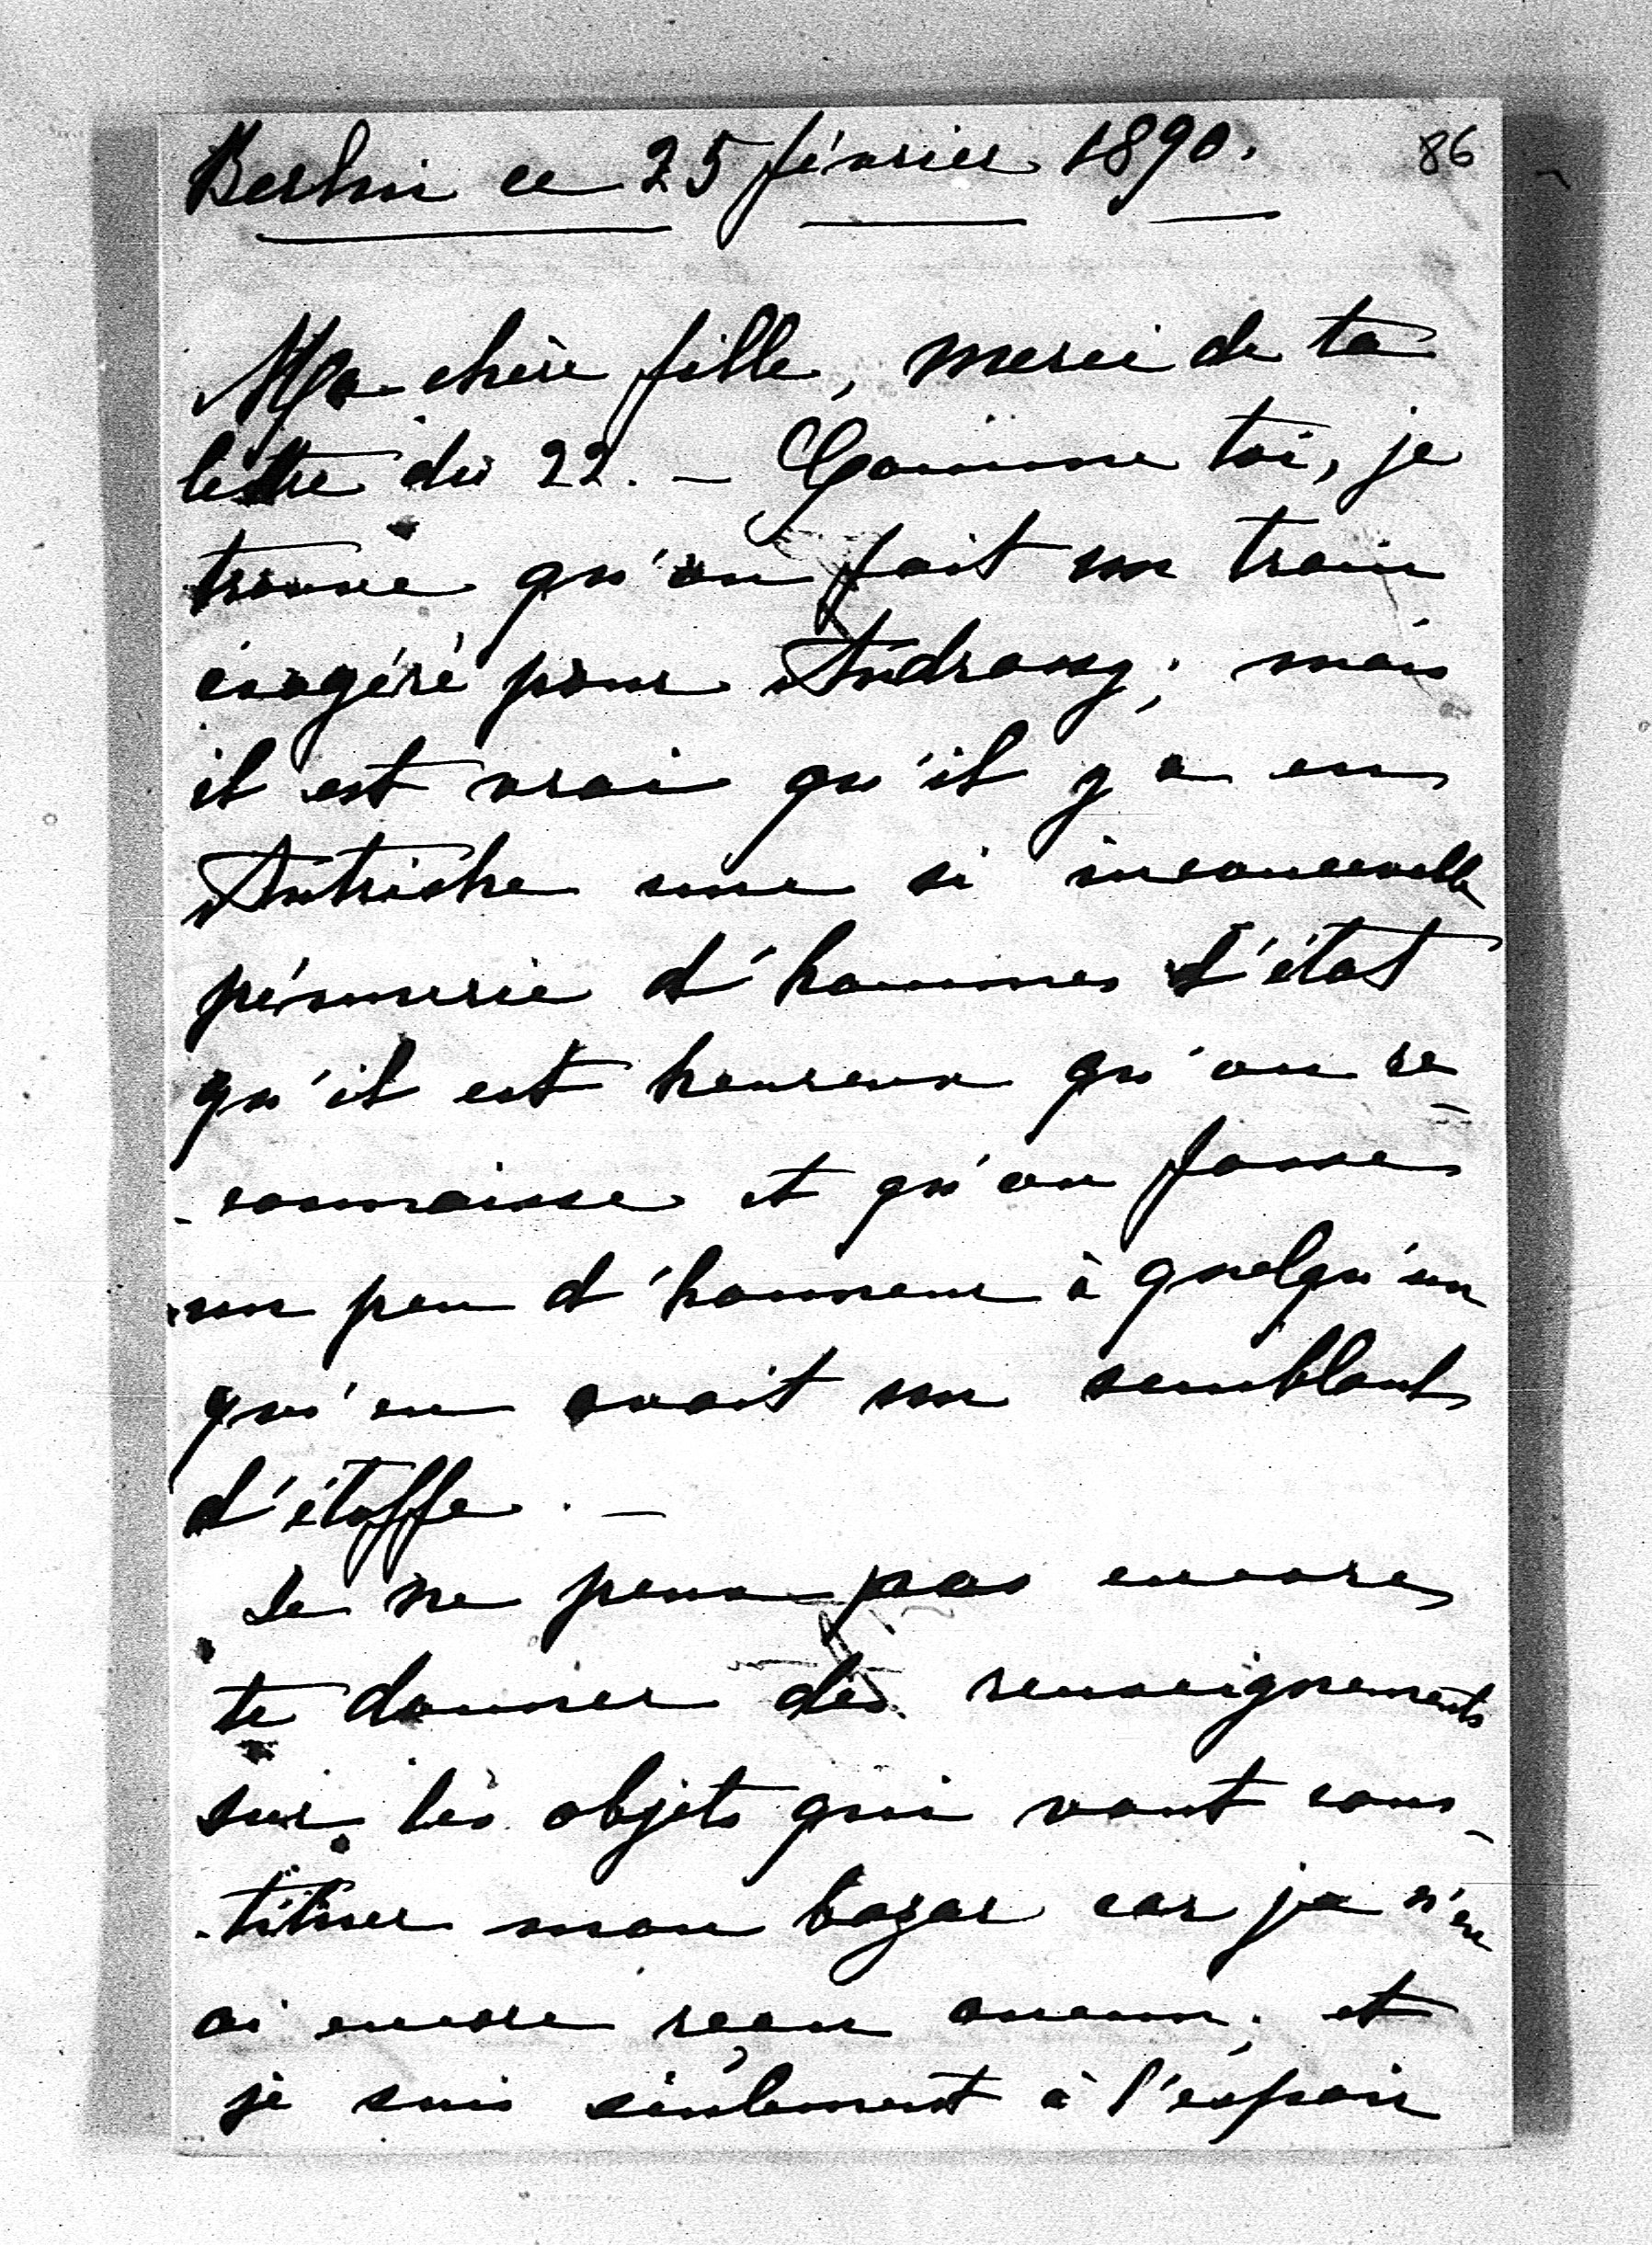 Berlin ce 25 février 1890.
86
Ma chère fille, merci de ta
lettre du 22. – Comme toi, je
trouve qu'on fait un train
exagéré pour Andrassy; mais
il est vrai qu'il y a en
Autriche une si inconcevable
pénurie d'hommes d'état
qu'il est heureux qu'on re=
-connaisse et qu'on fasse
un peu d'honneur à quelqu'un
qui en avait un semblant
d'étoffe. –
Je ne peux pas encore
te donner des renseignements
sur les objets qui vont cons-
-tituer mon bazar car je n'en
ai encore reçu aucun; et
je suis seulement à l'espoir